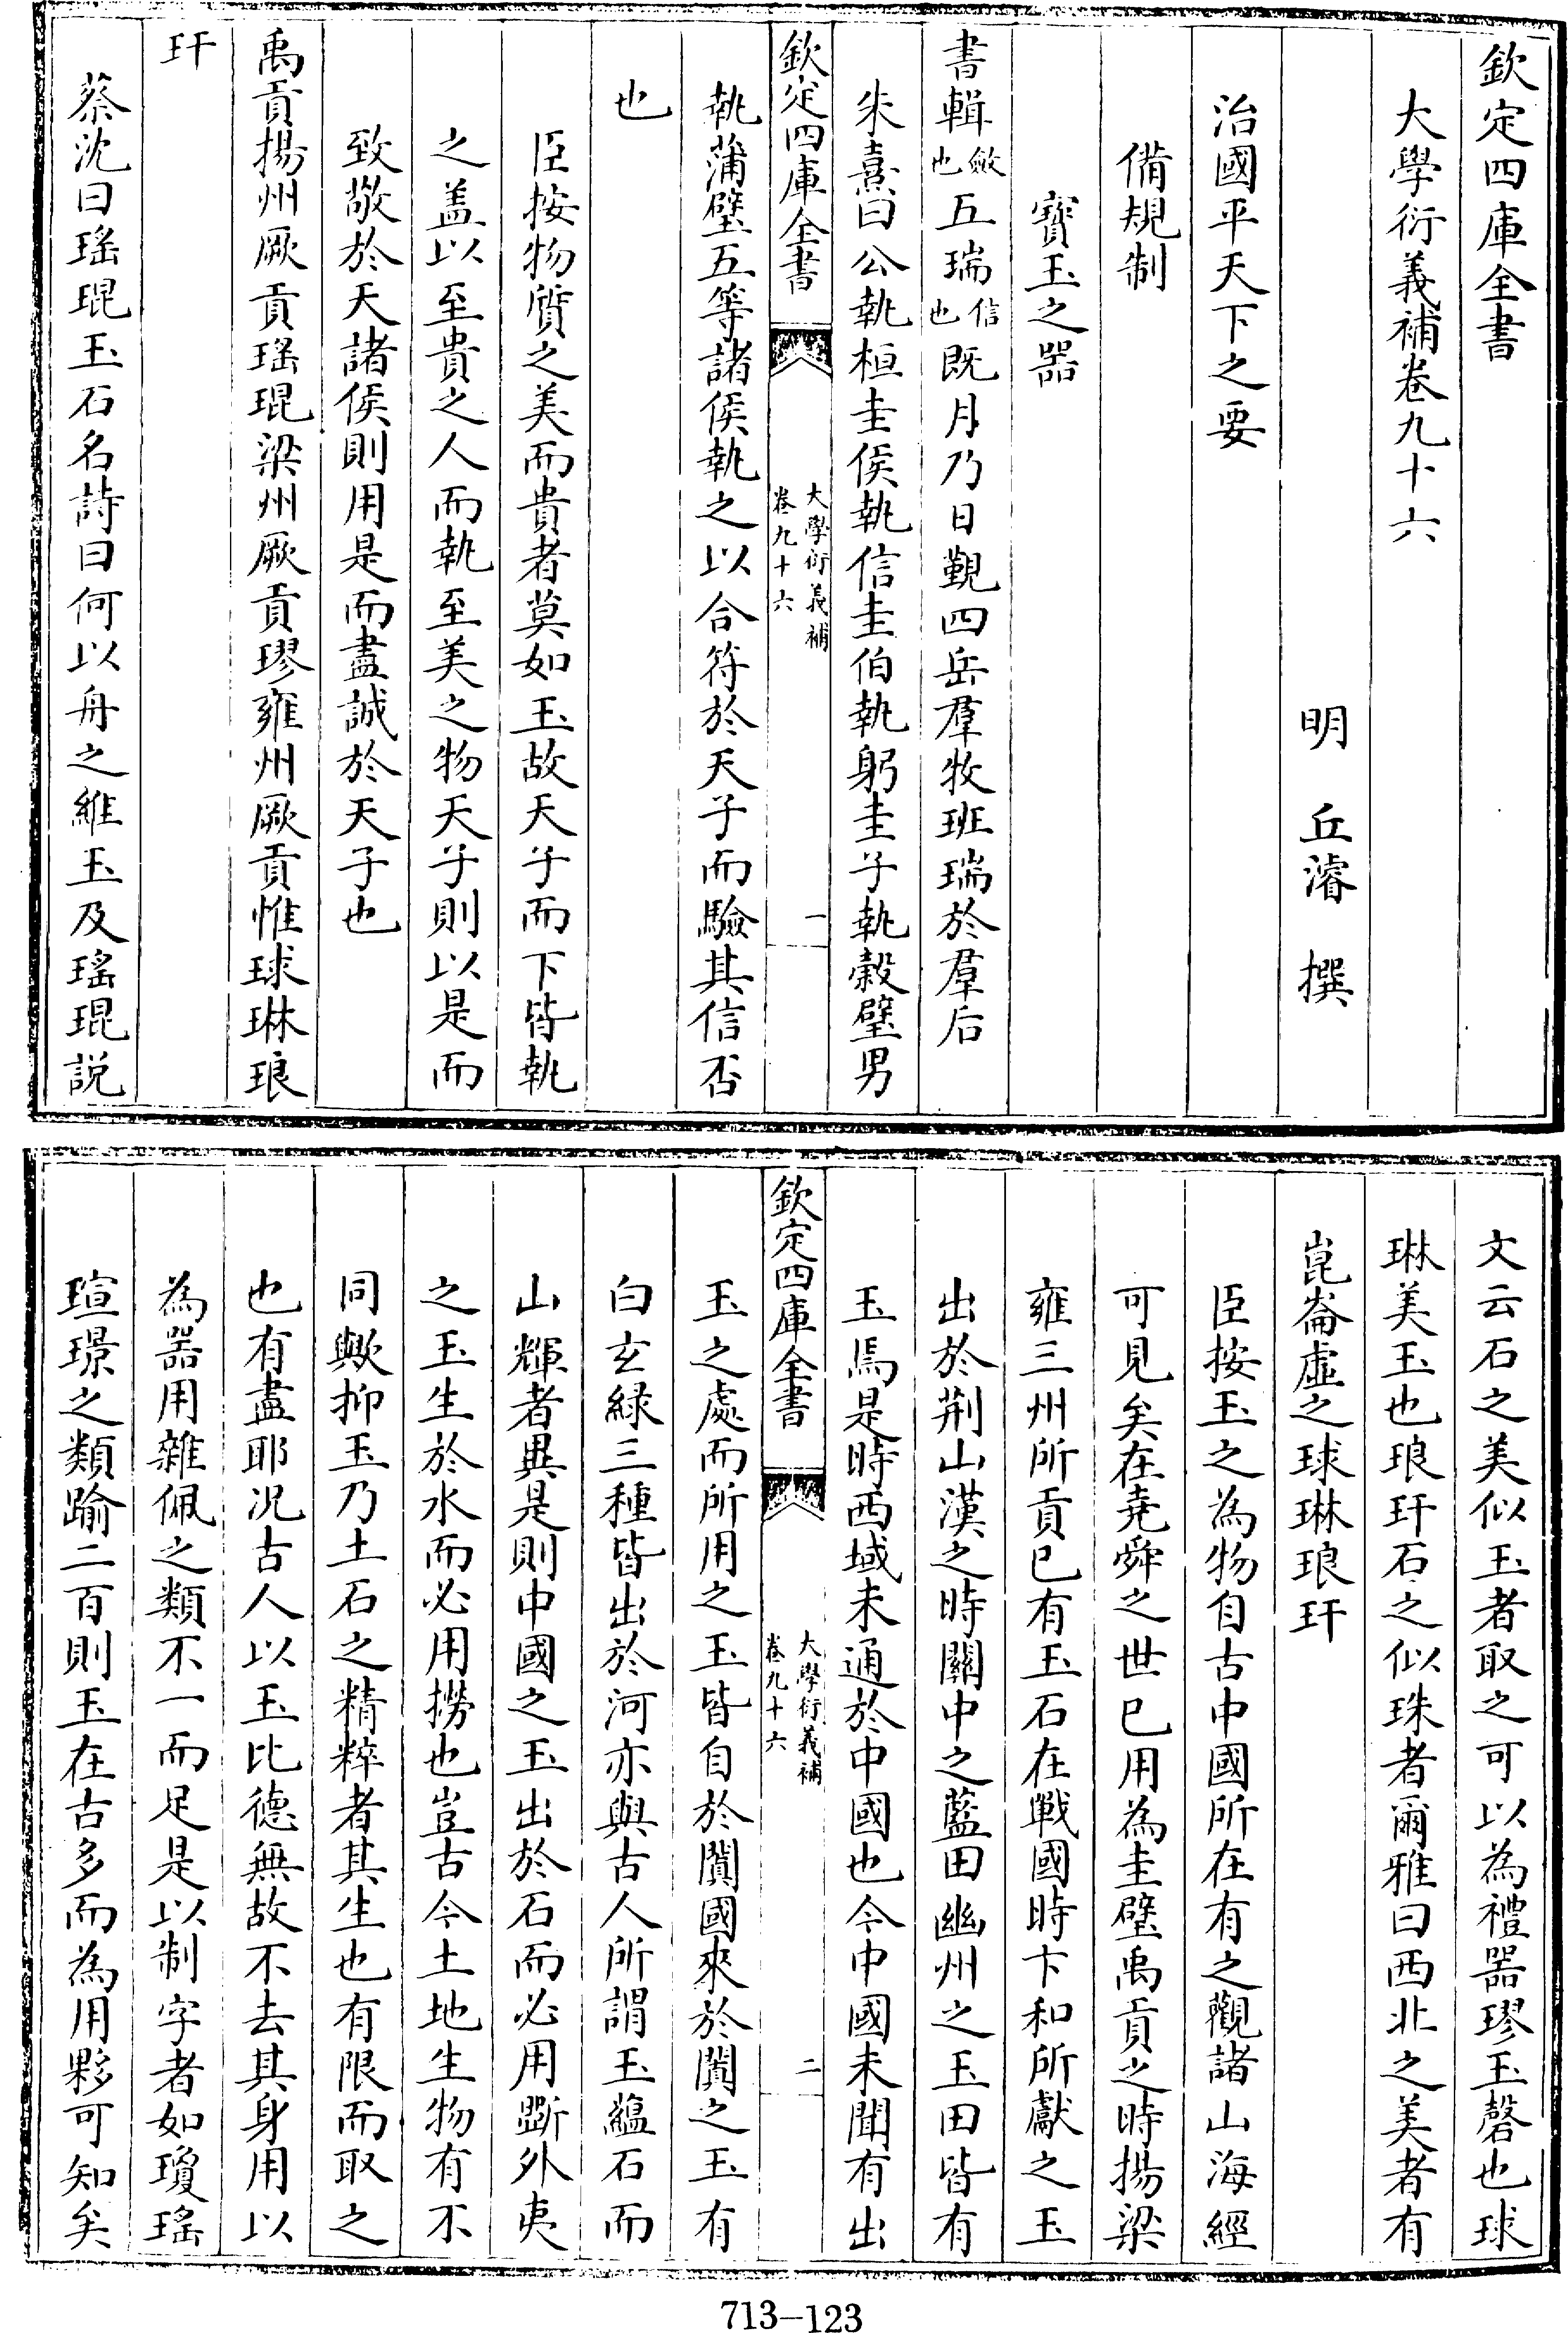 欽定四庫全書
大學衍義補卷九十六
明 丘濬 撰
治國平天下之要
備規制
寶玉之器
書輯斂也五瑞信也既月乃日覲四岳羣牧班瑞於羣后
朱熹曰公執桓圭侯執信圭伯執躬圭子執穀璧男
欽定四庫全書
大學衍義補
卷九十六
一
執蒲璧五等諸侯執之以合符於天子而驗其信否
也
臣按物質之美而貴者莫如玉故天子而下皆執
之盖以至貴之人而執至美之物天子則以是而
致敬於天諸侯則用是而盡誠於天子也
禹貢揚州厥貢瑤琨梁州厥貢璆雍州厥貢惟球琳琅
玕
蔡沈曰瑤琨玉石名詩曰何以舟之維玉及瑤琨説
文云石之美似玉者取之可以為禮器璆玉磬也球
琳美玉也琅玕石之似珠者爾雅曰西北之美者有
崑崙虛之球琳琅玕
臣按玉之為物自古中國所在有之觀諸山海經
可見矣在堯舜之世已用為圭璧禹貢之時揚梁
雍三州所貢已有玉石在戰國時卞和所獻之玉
出於荆山漢之時關中之藍田幽州之玉田皆有
玉焉是時西域未通於中國也今中國未聞有出
欽定四庫全書
大學衍義補
卷九十六
二
玉之處而所用之玉皆自於闐國來於闐之玉有
白玄緑三種皆出於河亦與古人所謂玉蘊石而
山輝者異是則中國之玉出於石而必用斵外夷
之玉生於水而必用撈也豈古今土地生物有不
同歟抑玉乃土石之精粹者其生也有限而取之
也有盡耶况古人以玉比德無故不去其身用以
為器用雜佩之類不一而足是以制字者如瓊瑤
瑄璟之類踰二百則玉在古多而為用夥可知矣
713-123